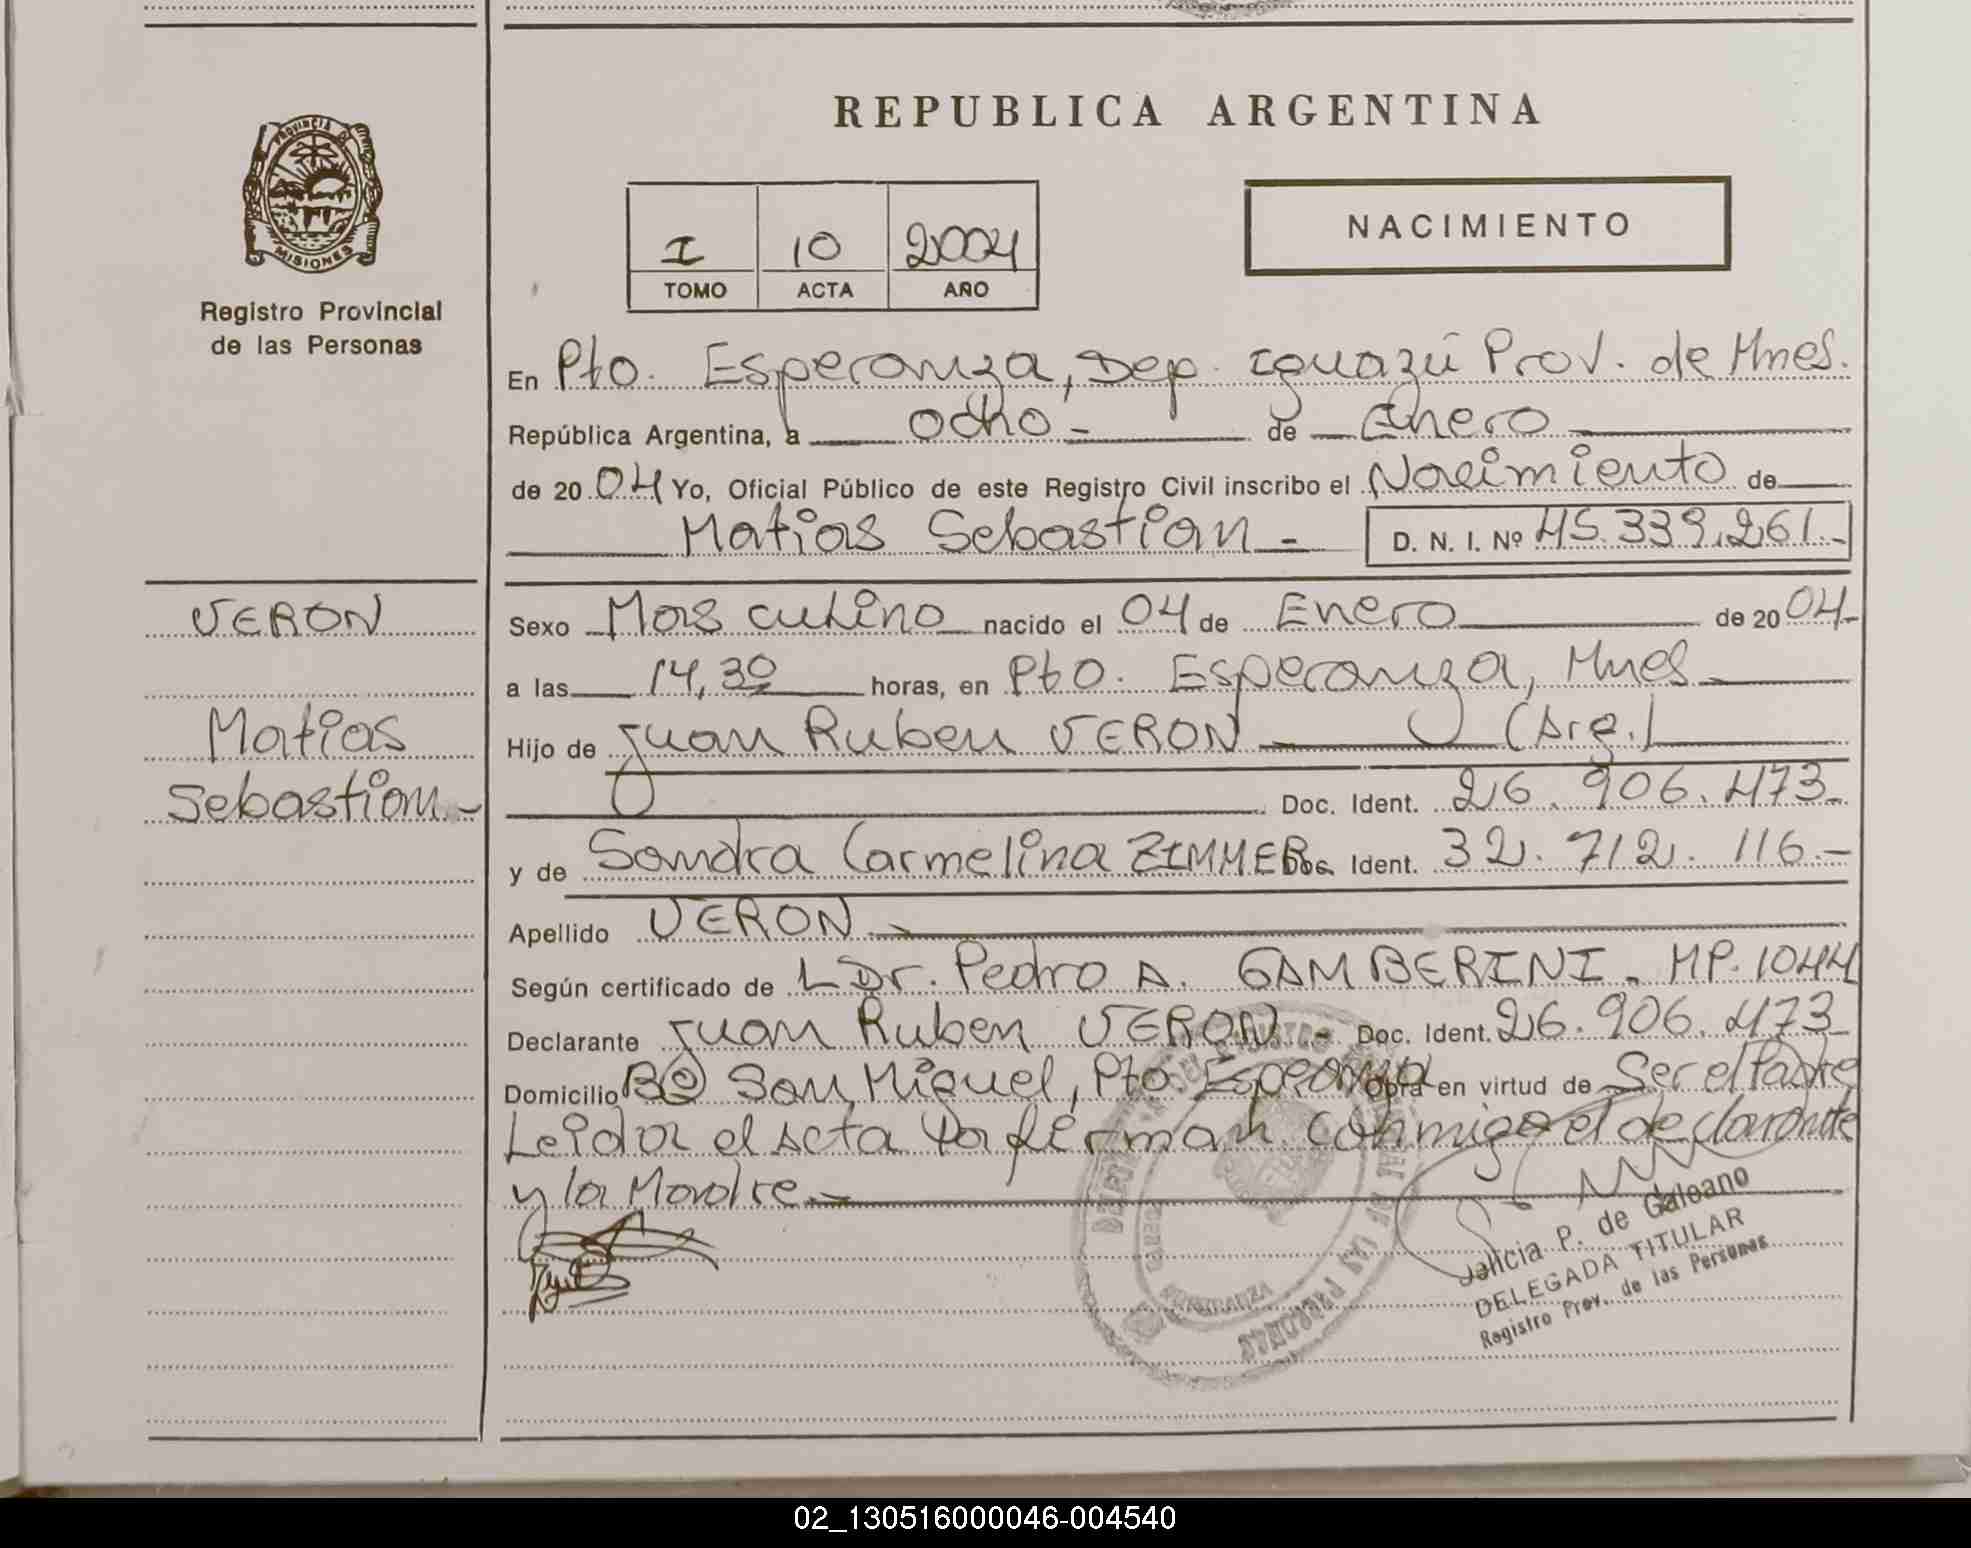 REPUBLICA ARGENTINA
PROVINCIA DE
MISIONES
Registro Provincial
de las Personas
I 10 2004
TOMO ACTA AÑO
NACIMIENTO
En Pto. Esperanza, Dep. Iguazú Prov. de Mnes.
República Argentina, a ocho - de Enero
de 20 04 Yo, Oficial Público de este Registro Civil inscribo el Nacimiento de
Matias Sebastian - D. N. I. Nº 45.339.261.-
VERON
Matias
Sebastian.-
Sexo Masculino nacido el 04 de Enero de 20 04-
a las 14,30 horas, en Pto. Esperanza, Mnes
Hijo de Juan Ruben VERON (Arg.)
Doc. Ident. 26.906.473-
y de Sandra Carmelina ZIMMER Doc. Ident. 32.712.116.-
Apellido VERON
Según certificado de L Dr. Pedro A. GAMBERINI. MP.1044
Declarante Juan Ruben VERON - Doc. Ident. 26.906.473
Domicilio Bº San Miguel, Pto Esperanza Obra en virtud de Ser el Padre
Leida el Acta la firman conmigo el declarante
y la Madre.-
Alicia P. de Galeano
DELEGADA TITULAR
Registro Prov. de las Personas
02_130516000046-004540